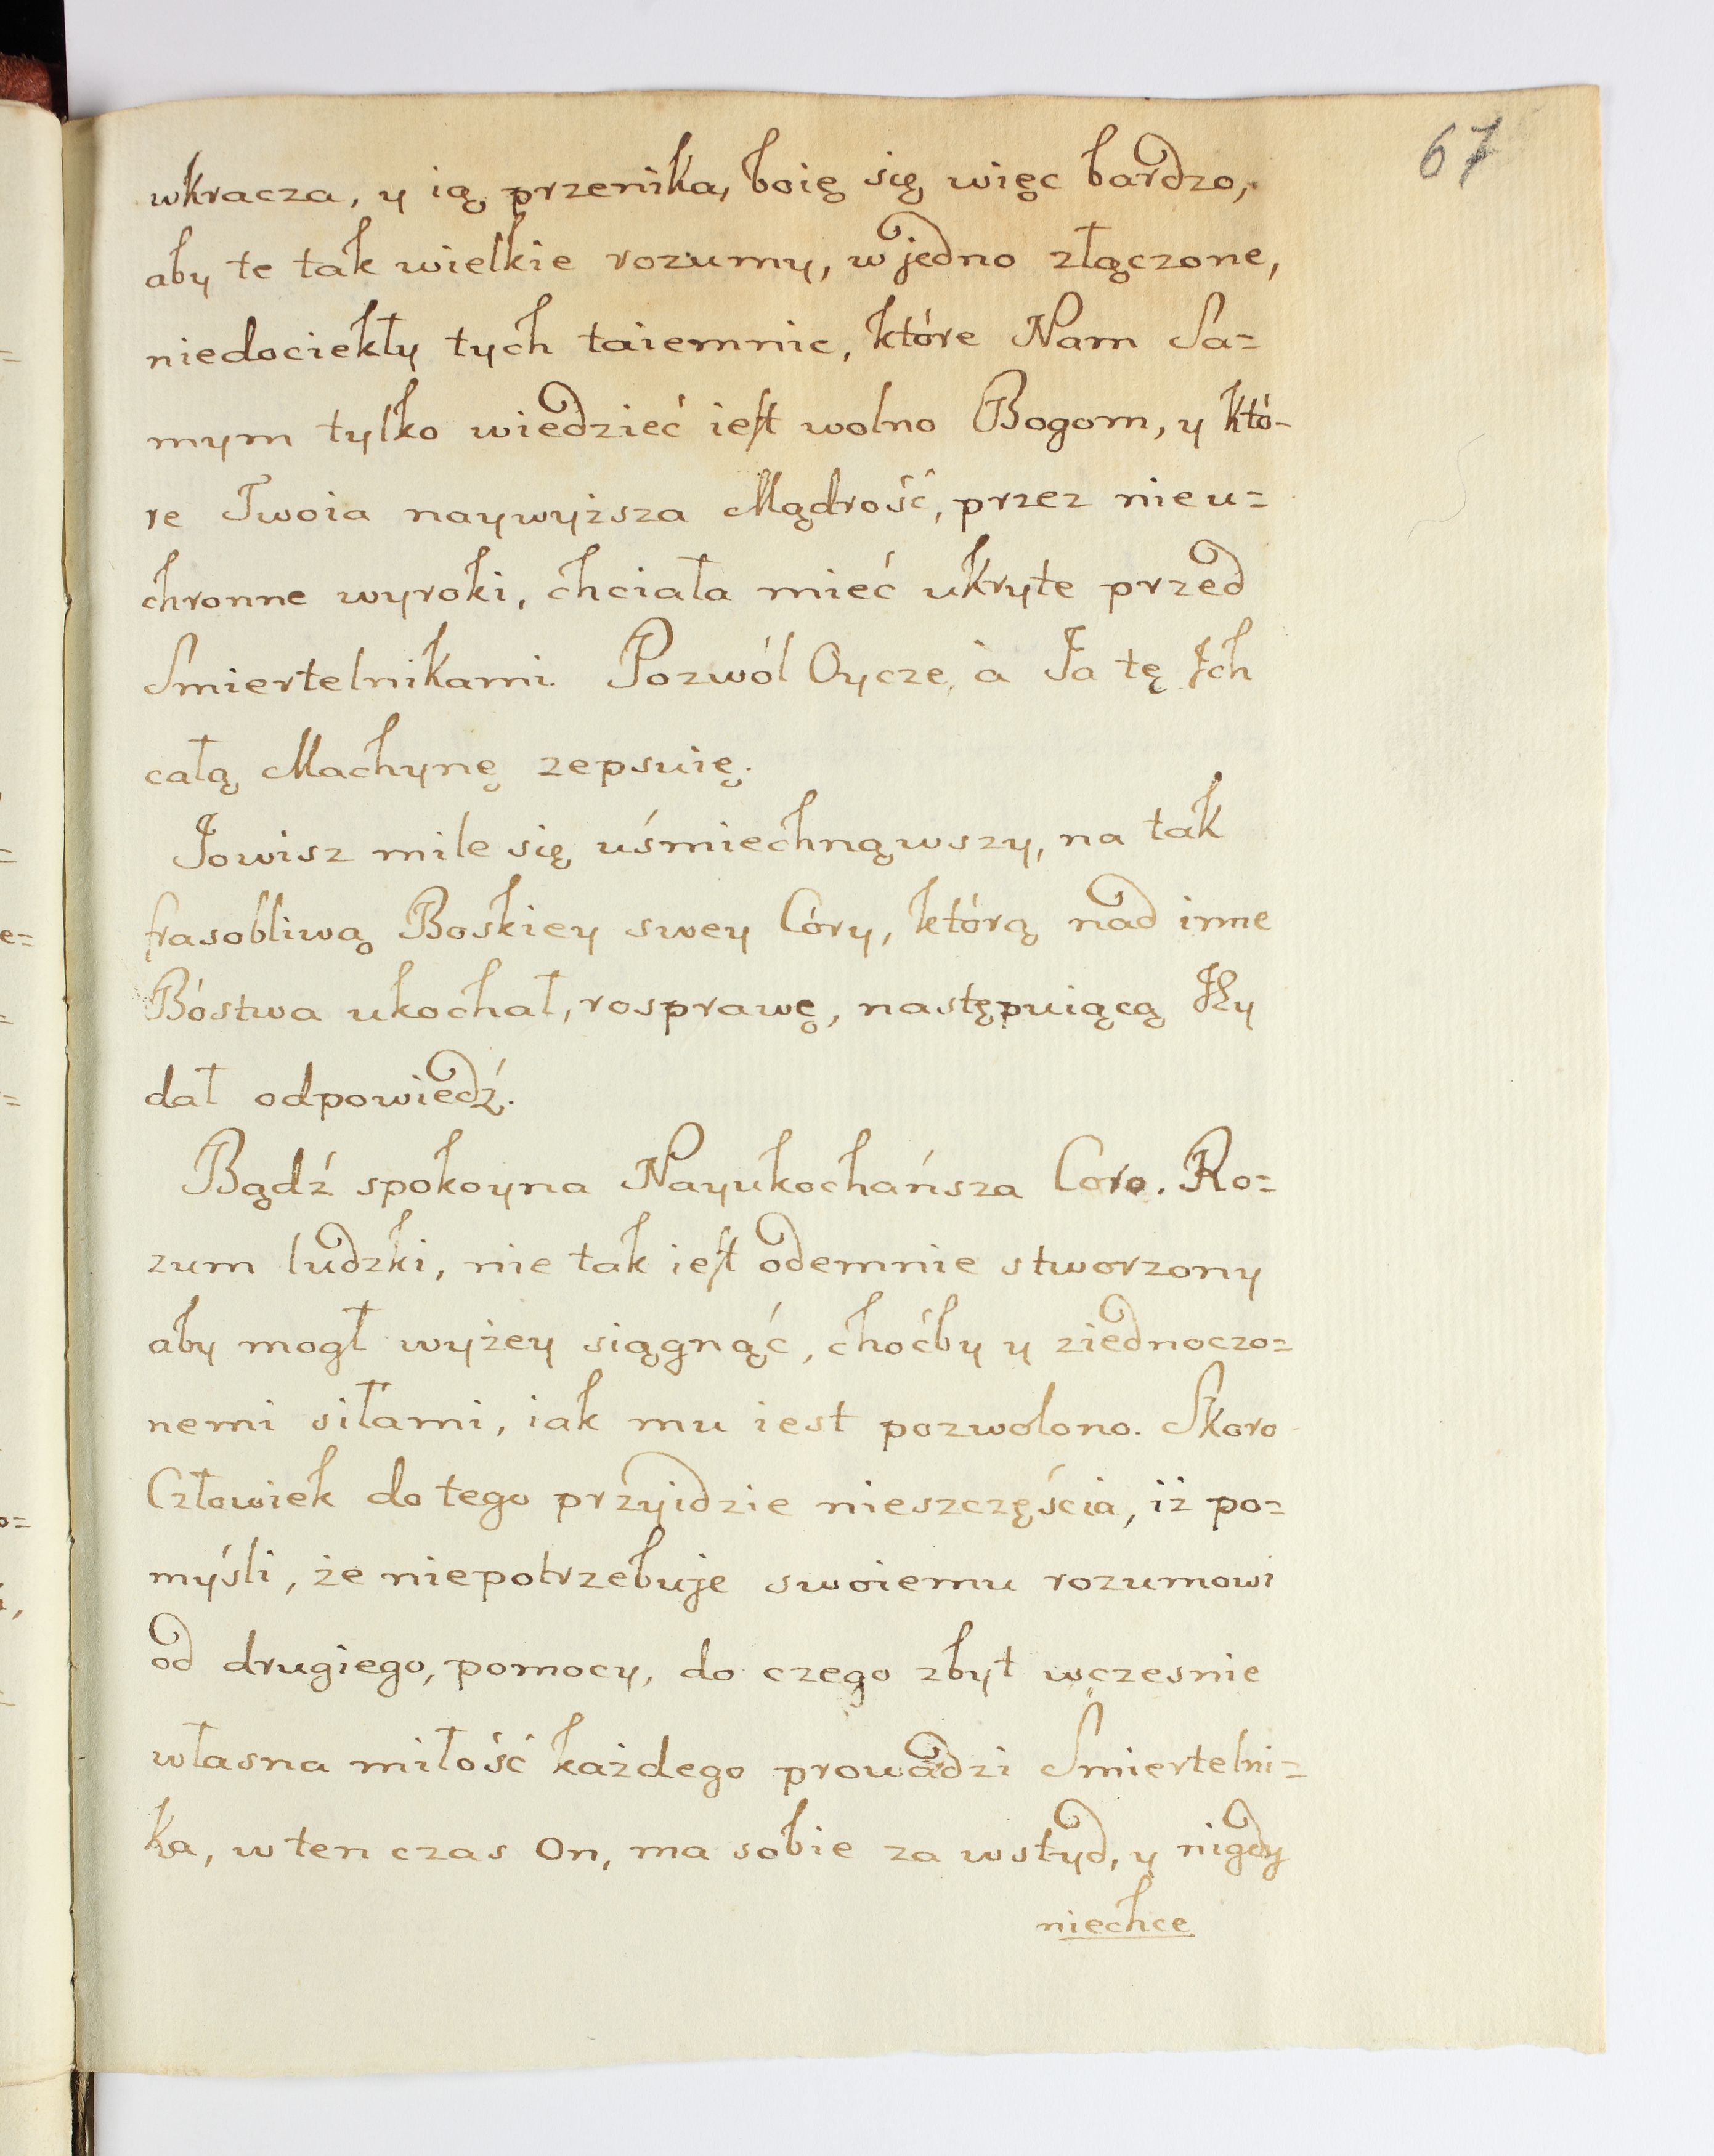 67
wkracza, y ią przenika, boię się więc bardzo,
aby te tak wielkie rozumy, w jedno złączone,
niedociekły tych taiemnic, które Nam Sa=
mym tylko wiedzieć iest wolno Bogom, y któ-
re Twoia naywyższa Mądrość, przez nieu=
chronne wyroki, chciała mieć ukryte przed
Smiertelnikami. Pozwól Oycze, a Ja tę Ich
całą Machynę zepsuię.
Jowisz mile się uśmiechnąwszy, na tak
frasobliwą Boskiey swey Córy, którą nad inne
Bóstwa ukochał, rosprawę, następuiącą Jey
dał odpowiedź.
Bądź spokoyna Nayukochańsza Coro. Ro=
zum ludzki, nie tak iest odemnie stworzony
aby mogł wyżey siągnąć, choćby y ziednoczo=
nemi siłami, iak mu iest pozwolono. Skoro
Człowiek do tego przyidzie nieszczęścia, iż po=
myśli, że niepotrzebuje swoiemu rozumowi
od drugiego, pomocy, do czego zbyt wczesnie
własna miłość każdego prowadzi Smiertelni=
ka, w ten czas On, ma sobie za wstyd, y nigdy
niechce